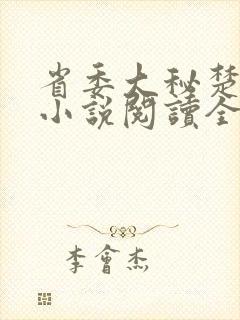 省委大秘楚
小説閱讀全
李會杰